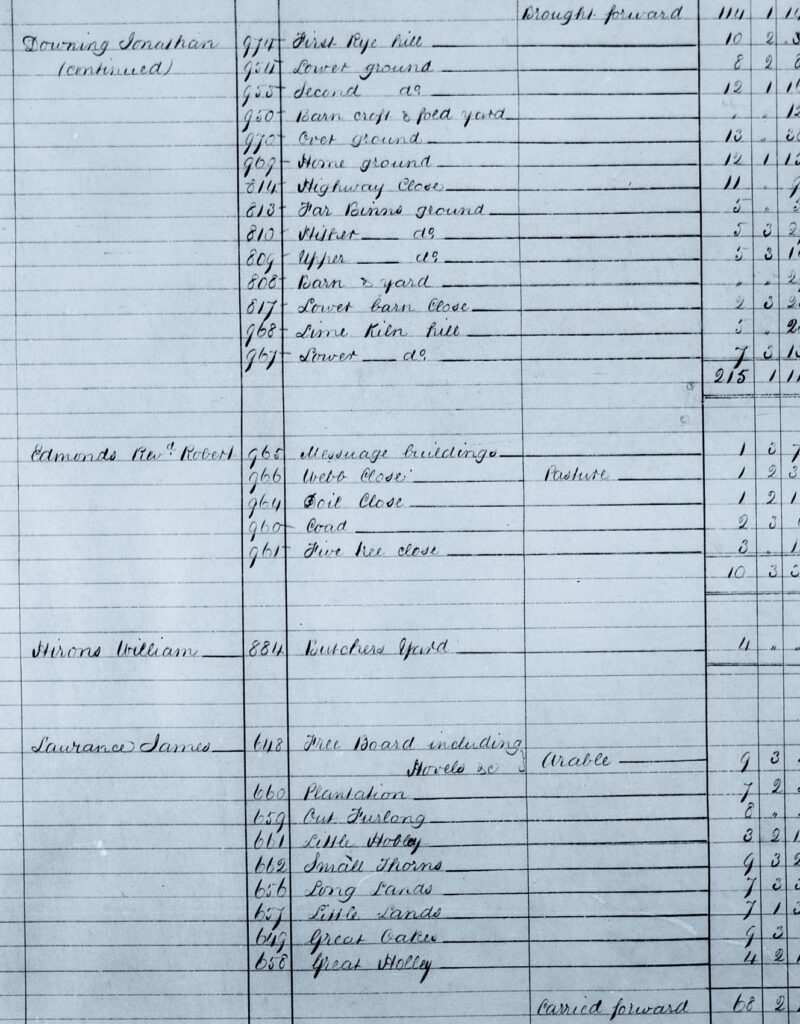 Brought forward 114 1
Downing Jonathan 974 First Rye hill 10 2
(continued) 954 Lower ground 8 2 8
955 Second do. 12 1
950 Barn croft & fold yard " " 12
970 Over ground 13 "
969 Home ground 12 1
814 Highway Close 11 "
813 Far Binns ground 5 "
810 Hither do. 5 3
809 Upper do. 5 3
808 Barn & yard " "
817 Lower barn Close 2 3
968 Lime Kiln hill 5 "
967 Lower do. 7 3
215 1
Edmonds Revd. Robert 965 Messuage buildings 1 3 7
966 Webb Close Pasture 1 2
964 Close 1 2
960 Coad 2 3
961 Five tree close 3 "
10 3
Hirons William 884 Butchers Yard 4 " "
Laurance James 648 Free Board including
Hovels &c Arable 9 3
660 Plantation 7 2
659 Cut Furlong 8 "
661 Little 3 2
662 Small Thorns 9 3
656 Long Lands 7 3
657 Little Lands 7 1
649 Great Oakes 9 3
658 Great 4 2
Carried forward 68 2